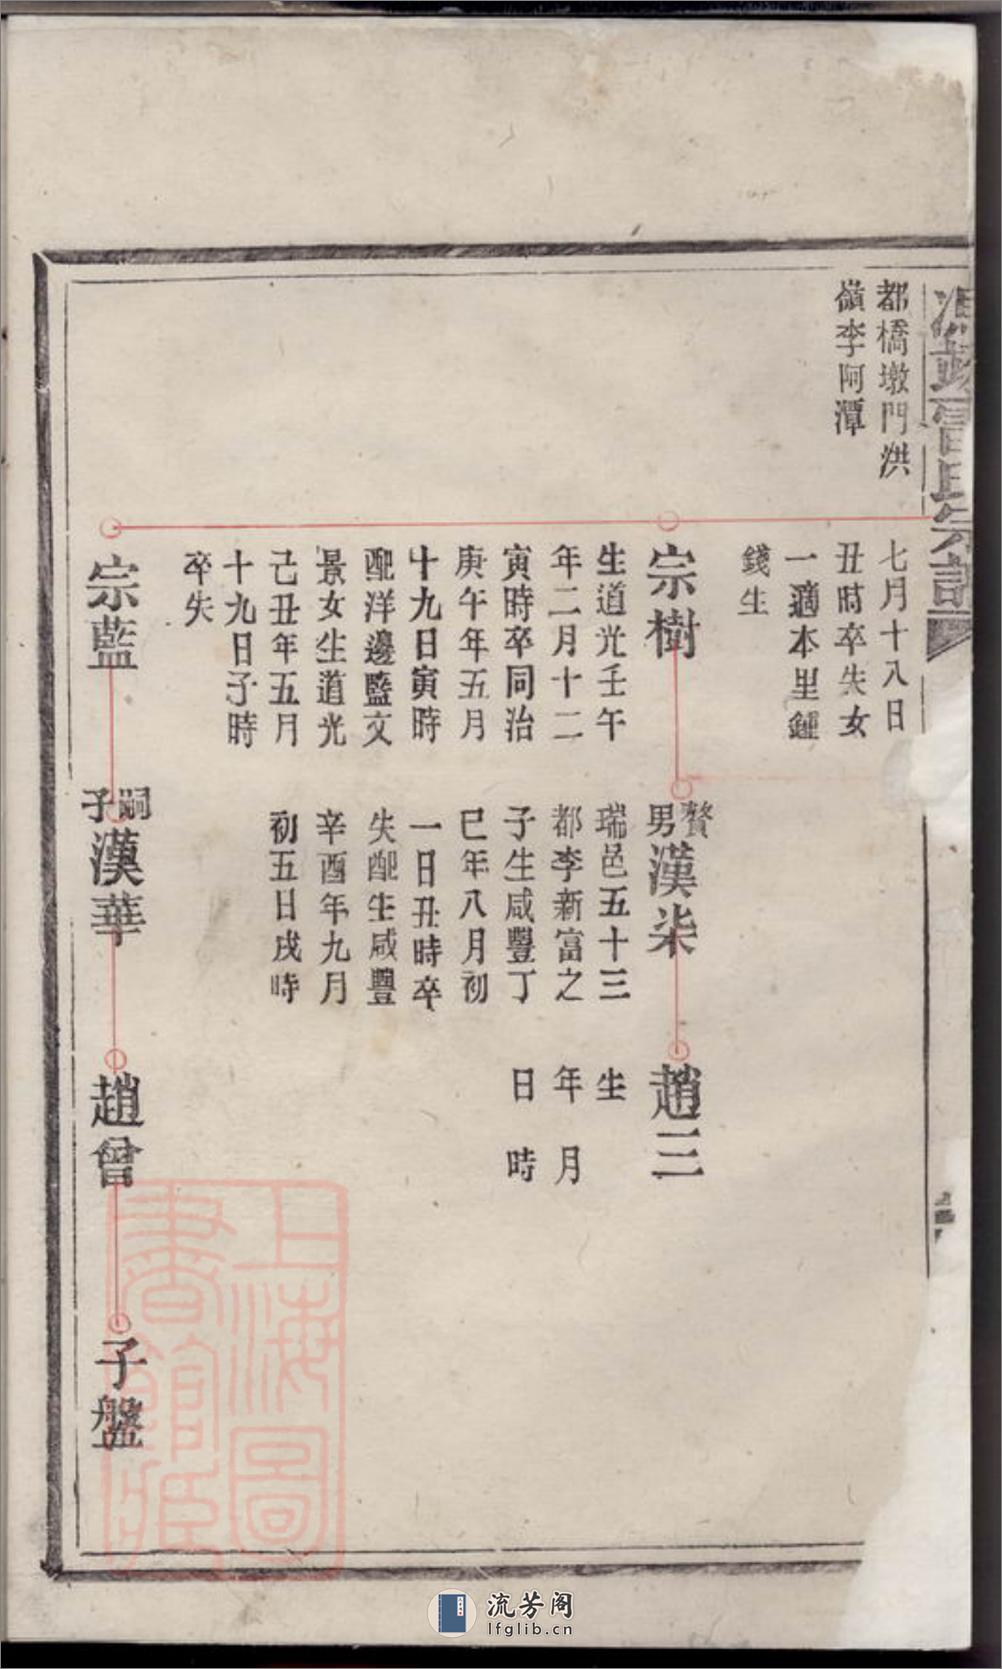 氏宗譜
都橋墩門洪
嶺李阿潭
七月十八日
丑時卒失女
一適本里鍾
錢生
宗樹
生道光壬午
年二月十二
寅時卒同治
庚午年五月
十九日寅時
配洋邊藍文
景女生道光
己丑年五月
十九日子時
卒失
宗藍
贅男漢柒
瑞邑五十三
都李新富之
子生咸豐丁
巳年八月初
一日丑時卒
失配生咸豐
辛酉年九月
初五日戌時
嗣子漢華
趙三
生
年月
日時
趙曾
子盤
上海圖
書館藏
流芳阁
lfglib.cn